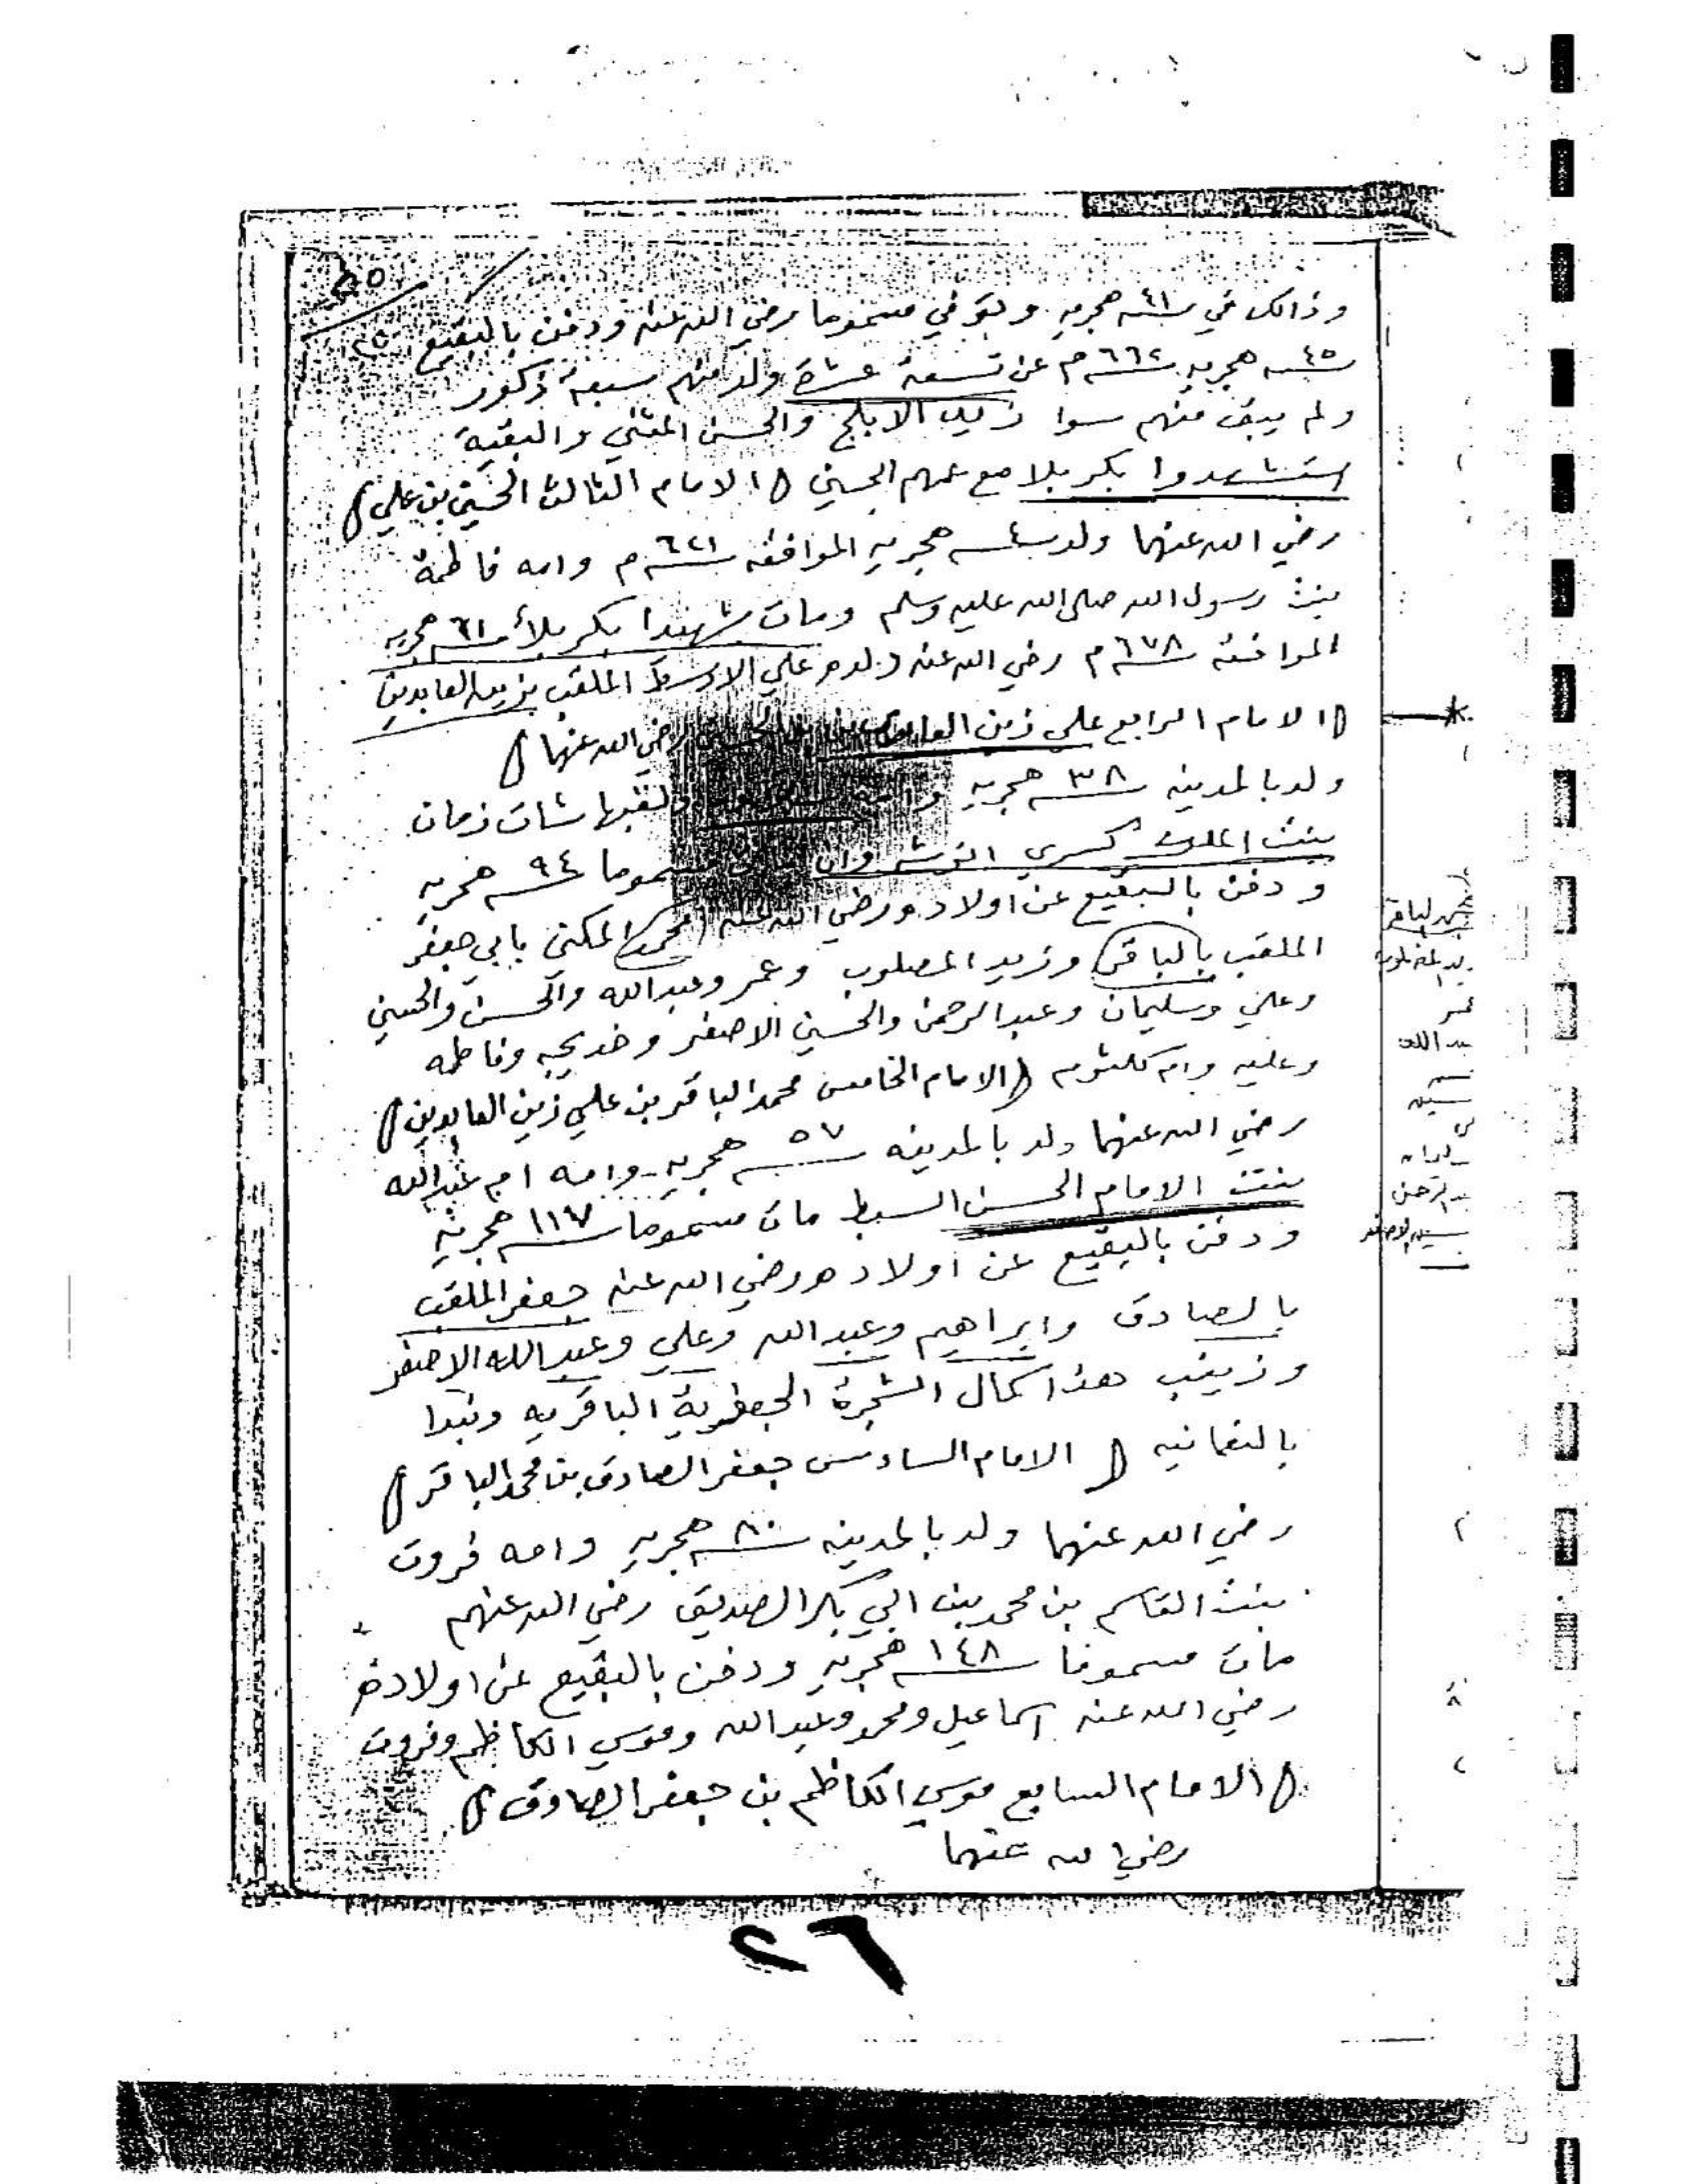 ٢٥
وذالك في سنة ٤١ هجريه وتوفي مسموما رضي الله عنه ودفن بالبقيع
سنة ٤٥ هجريه سنة ٦٦٢ م عن تسعة عشرة ولد منهم سبعة ذكور
ولم يبق منهم سوا زيد الابلج والحسن المثني والبقية
استشهدوا بكربلا مع عمهم الحسين ( الامام الثالث الحسين بن علي )
رضي الله عنهما ولد سنة هجريه الموافقه سنة ٦٢١ م وامه فاطمة
بنت رسول الله صلى الله عليه وسلم ومات شهيدا بكربلاء سنة ٦١ هجريه
الموافقة سنة ٦٧٨ م رضي الله عنه ولده علي الاوسط الملقب بزين العابدين
( الامام الرابع علي زين العابدين بن الحسين رضي الله عنهما )
ولد بالمدينه سنة ٣٨ هجريه ولقبها شات زمان
بنت الملك كسري انوشروان مات مسموما سنة ٩٤ هجريه
ودفن بالبقيع عن اولاده ورضي الله عنه ( محمد ) المكنى بابي جعفر
الملقب بالباقر وزيد المصلوب وعمر وعبدالله والحسن والحسين
وعلي وسليمان وعبدالرحمن والحسين الاصغر وخديجه وفاطمه
وعليه وام كلثوم ( الامام الخامس محمد الباقر بن علي زين العابدين )
رضي الله عنهما ولد بالمدينه سنة ٥٧ هجريه وامه ام عبدالله
بنت الامام الحسن السبط مات مسموما سنة ١١٧ هجريه
ودفن بالبقيع عن اولاده ورضي الله عنه جعفر الملقب
بالصادق وابراهيم وعبدالله وعلي وعبيدالله الاصغر
وزينب هذا كمال الشجرة الجعفرية الباقريه ونبدا
بالنعمانيه ( الامام السادس جعفر الصادق بن محمد الباقر )
رضي الله عنهما ولد بالمدينه سنة ٨٠ هجريه وامه فروت
بنت القاسم بن محمد بن ابي بكر الصديق رضي الله عنهم
مات مسموما سنة ١٤٨ هجريه ودفن بالبقيع عن اولاده
رضي الله عنه اسماعيل ومحمد وعبدالله وموسي الكاظم وفروت
( الامام السابع موسي الكاظم بن جعفر الصادق )
رضي الله عنهما
٢٦